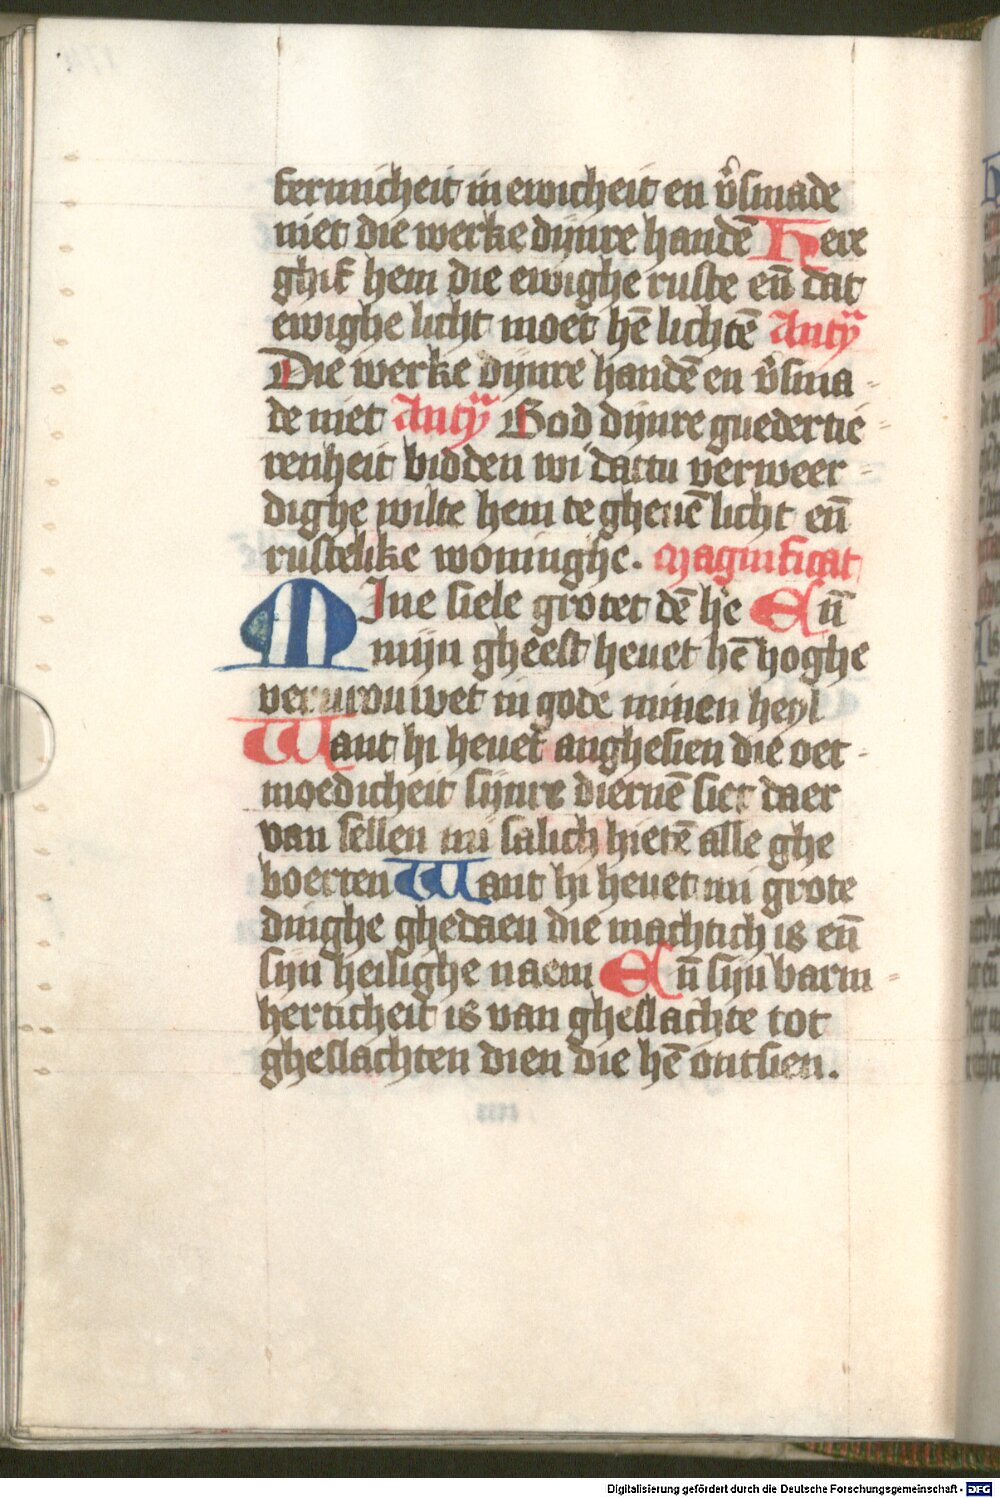 fermicheit in ewicheit en v̾smade
niet die werke dijnre handē Here
ghif hem die ewighe ruste eñ dat
ewighe licht moet hē lichtē Antÿ
Die werke dijnre handē en v̾sma-
de niet Antÿ God dijnre guedertie-
renheit bidden wi dattu verweer-
dighe wilte hem te gheuē licht eñ
rustelike woninghe. Magnificat
MIne siele grotet dē he̾ Eñ
mijn gheest heuet hē hoghe
vervrouwet in gode minen heyl
Want hi heuet anghesien die oet-
moedicheit sijnre diernē siet daer
van sellen mi salich hietē alle ghe
boerten Want hi heuet mi grote
dinghe ghedaen die machtich is eñ
sijn heilighe naem Eñ sijn barm-
herticheit is van gheslachte tot
gheslachten dien die hē ontsien.
Digitalisierung gefördert durch die Deutsche Forschungsgemeinschaft - DFG